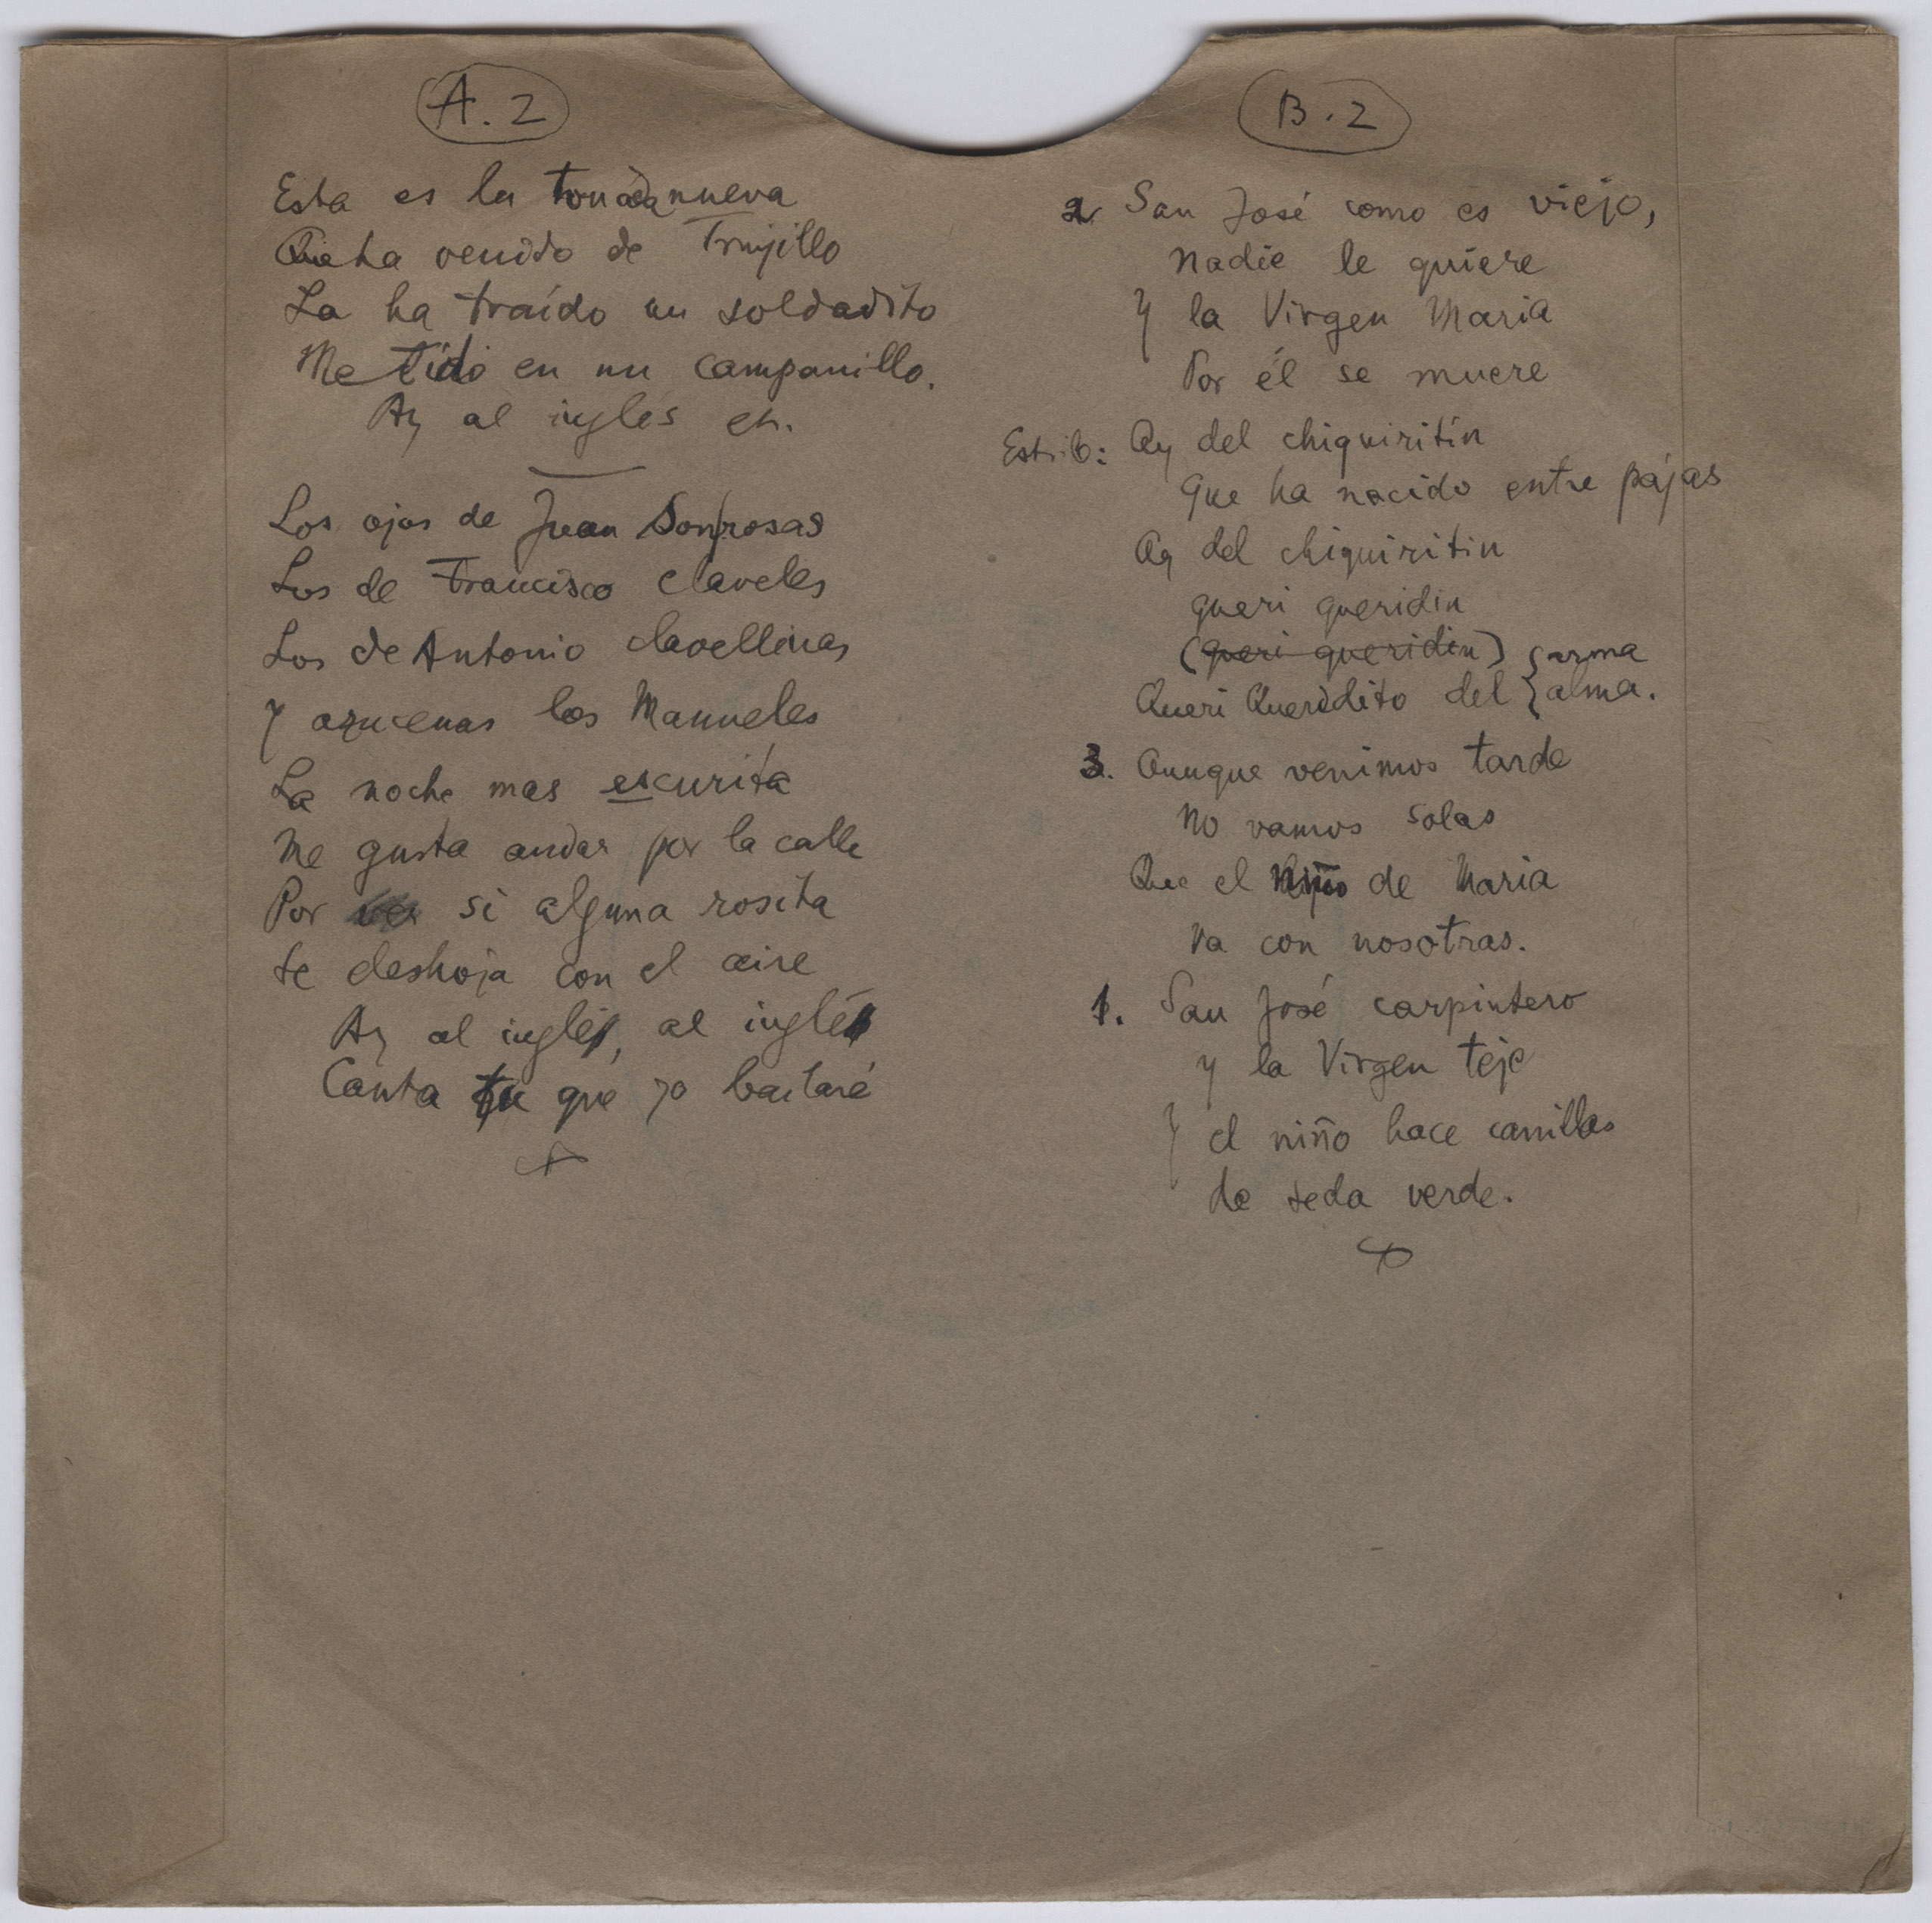 A.2
Esta es la tonada nueva
Que ha venido de Trujillo
La ha traído un soldadito
Metido en un campanillo.
Ay al inglés eh.
Los ojos de Juan Son rosas
Los de Francisco claveles
Los de Antonio clavellinas
Y azucenas los Manueles
La noche mas escurita
Me gusta andar por la calle
Por ver si alguna rosita
se deshoja con el aire
Ay al inglés, al inglés
Canta tu que yo bailaré
B.2
2. San José como es viejo,
Nadie le quiere
Y la Virgen Maria
Por él se muere
Estrib: Ay del chiquiritín
Que ha nacido entre pajas
Ay del chiquiritin
queri queridin
(queri queridin) { arma
Queri Queridito del { alma.
3. Aunque venimos tarde
No vamos solas
Que el Niño de Maria
Va con nosotras.
1. San José carpintero
y la Virgen teje
Y el niño hace canillas
de seda verde.